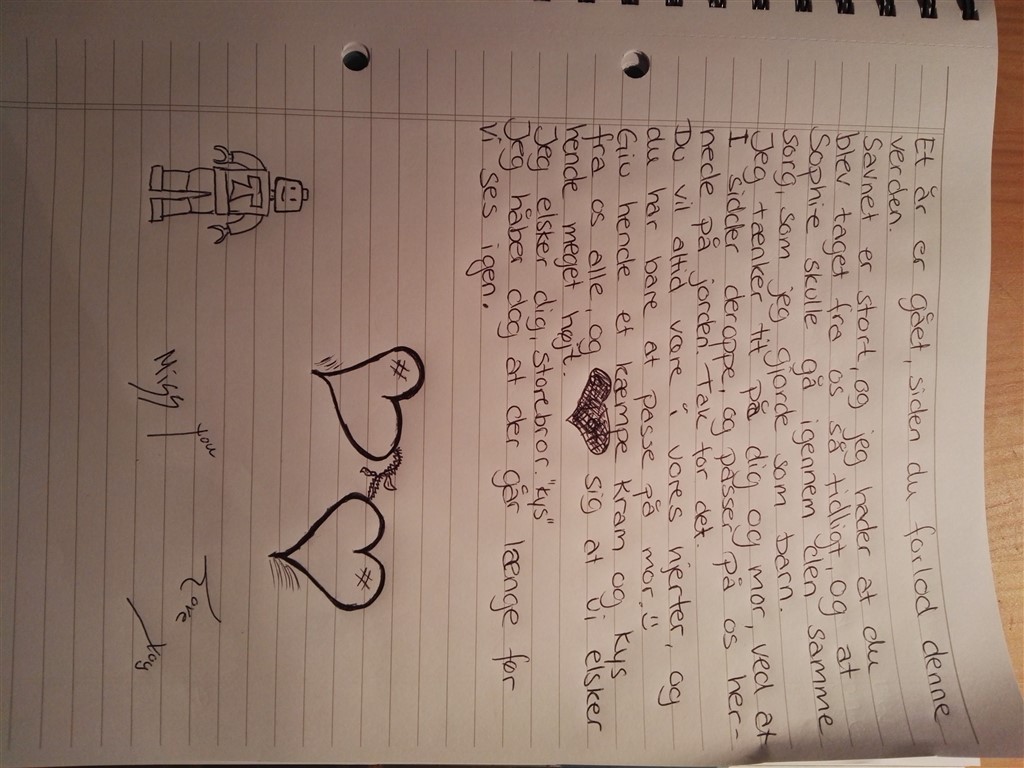 Et år er gået, siden du forlod denne
verden.
Savnet er stort, og jeg hader at du
blev taget fra os så tidligt, og at
Sophie skulle gå igennem den samme
sorg, som jeg gjorde som barn.
Jeg tænker tit på dig og mor, ved at
I sidder deroppe, og passer på os her-
nede på jorden. Tak for det.
Du vil altid være i vores hjerter, og
du har bare at passe på mor. :)
Giv hende et kæmpe kram og kys
fra os alle, og sig at vi elsker
hende meget højt.
Jeg elsker dig, storebror. "kys"
Jeg håber dog at der går længe før
vi ses igen.
you Love
Miss